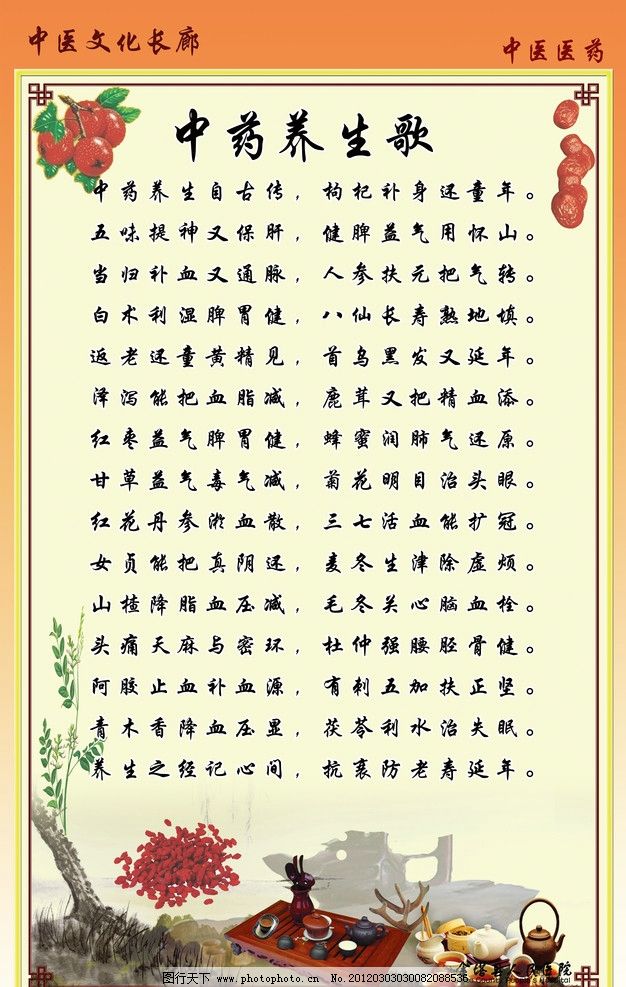 中医文化长廊
中医医药
中药养生歌
中药养生自古传，枸杞补身还童年。
五味提神又保肝，健脾益气用怀山。
当归补血又通脉，人参扶元把气转。
白术利湿脾胃健，八仙长寿熟地填。
返老还童黄精见，首乌黑发又延年。
泽泻能把血脂减，鹿茸又把精血添。
红枣益气脾胃健，蜂蜜润肺气还原。
甘草益气毒气减，菊花明目治头眼。
红花丹参淤血散，三七活血能扩冠。
女贞能把真阴还，麦冬生津除虚烦。
山楂降脂血压减，毛冬关心脑血栓。
头痛天麻与密环，杜仲强腰胫骨健。
阿胶止血补血源，有刺五加扶正坚。
青木香降血压显，茯苓利水治失眠。
养生之经记心间，抗衰防老寿延年。
县人民医院
图行天下 www.photophoto.cn No.20120303030082088536